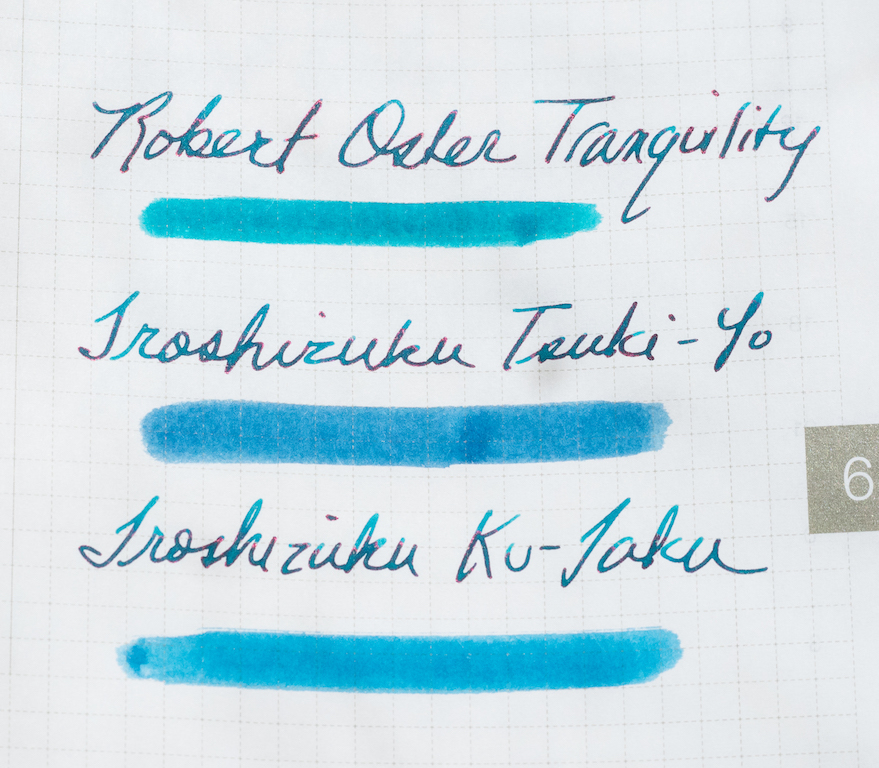 Robert Oster Tranquility
Iroshizuku Tsuki-Yo
6
Iroshizuku Ku-Jaku